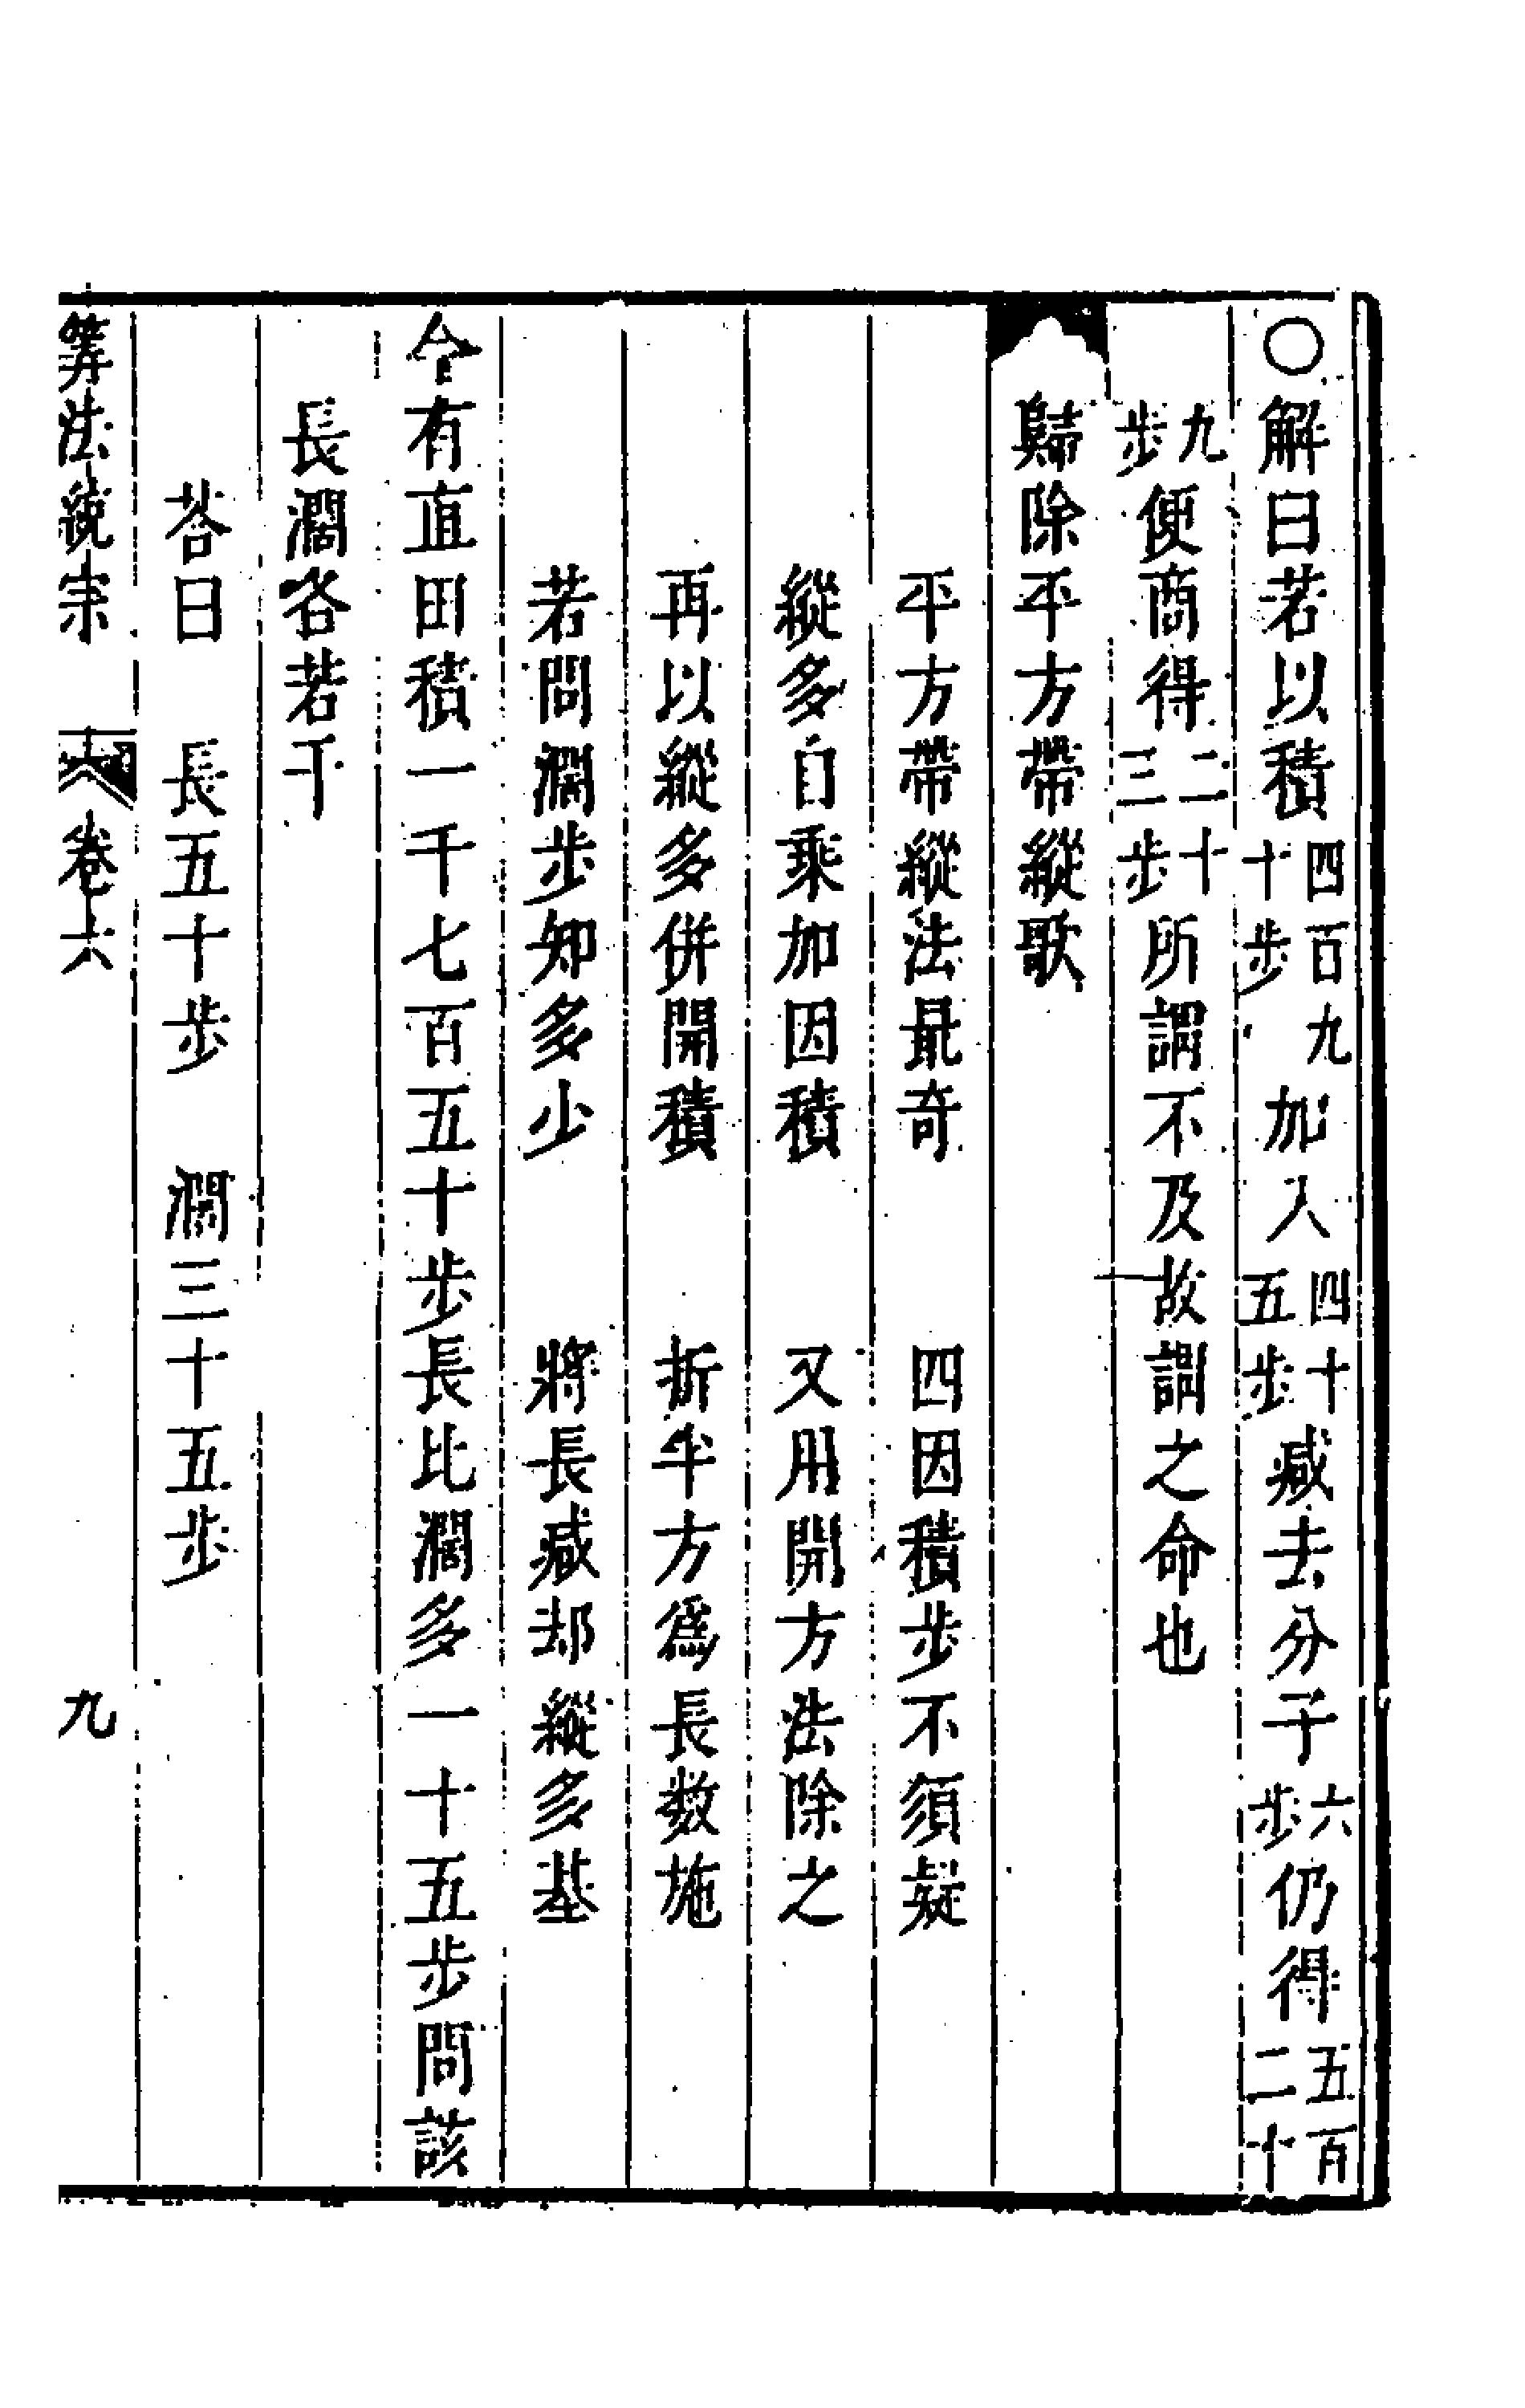 ○解曰若以積四百九十步加入四十五步减去分子六步仍得五百二十
九步便商得二十三步所謂不及故謂之命也
歸除平方帶縱歌
平方帶縱法最奇 四因積步不須疑
縱多自乘加因積 又用開方法除之
再以縱多併開積 折半方爲長数施
若問濶步知多少 將長减却縱多基
今有直田積一千七百五十步長比濶多一十五步問該
長濶各若干
荅曰 長五十步 濶三十五步
筭法統宗 卷六 九